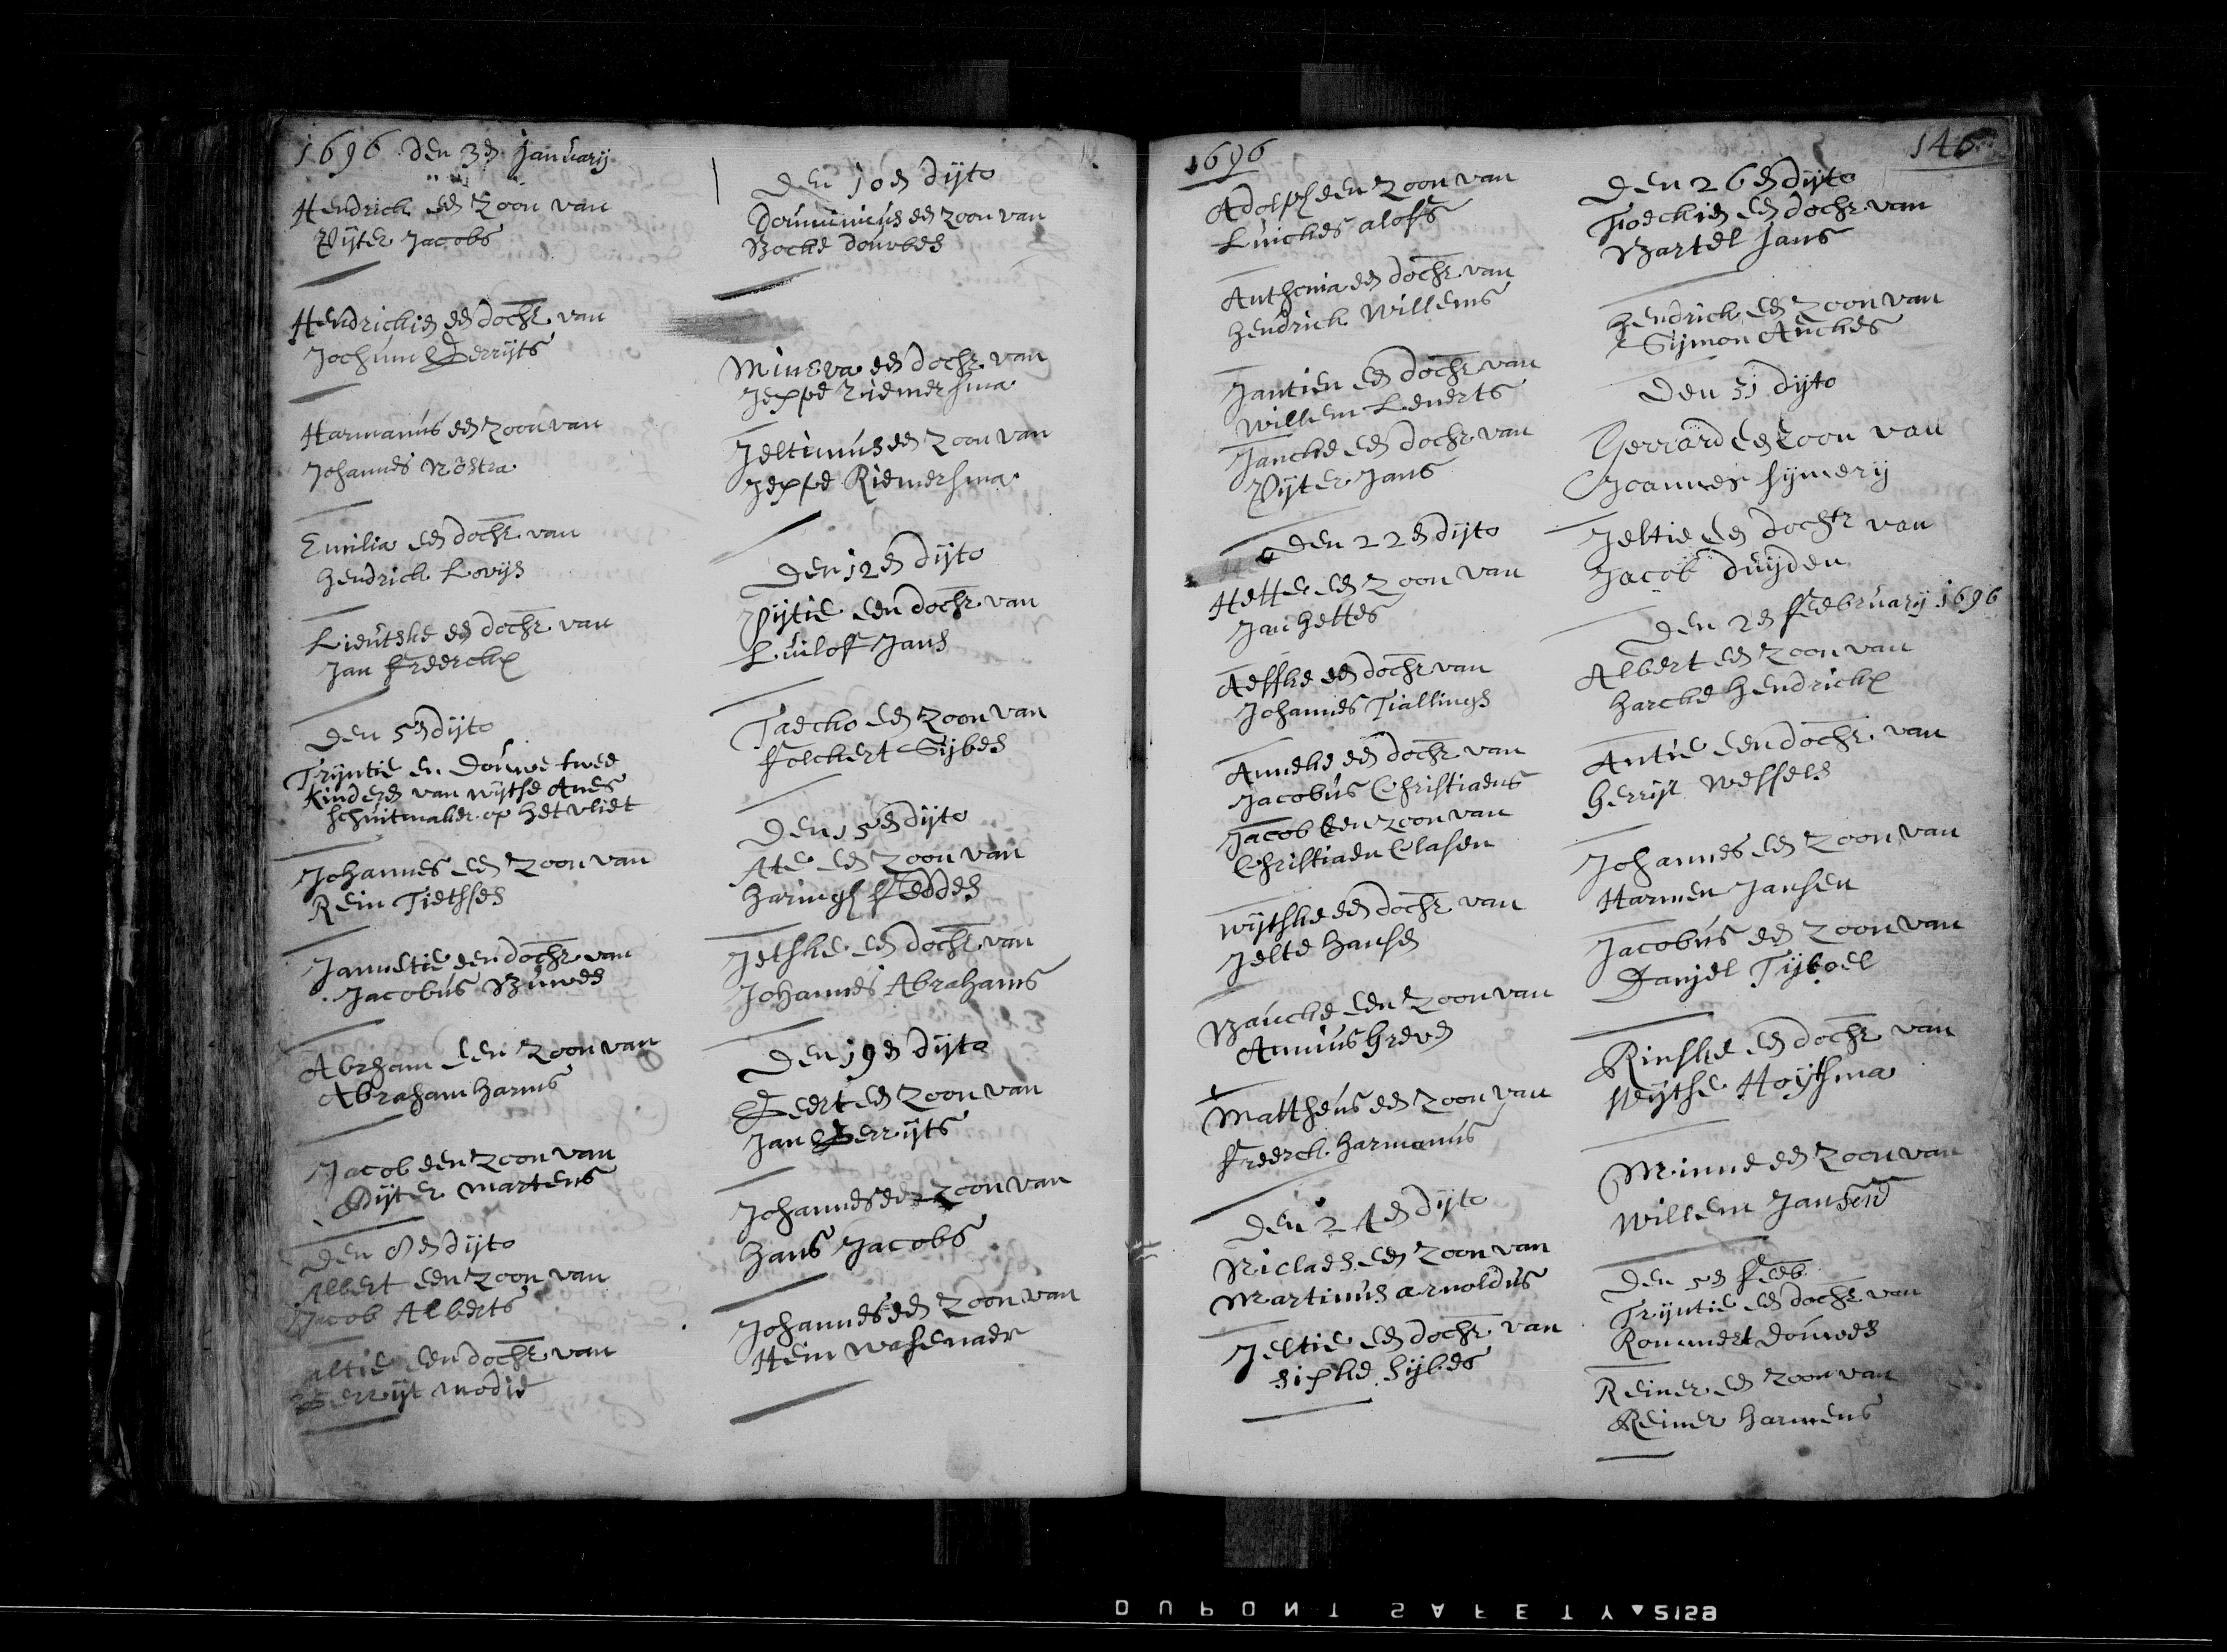 1696 den 3en January
Hendrick een zoon van
Pijter Jacobs
Hendrickien een dochr van
Jochum Gerrijts
Harmanus een zoon van
Johannes Nostra
Emilia een dochr van
Hendrick Lovijs
Lieutske een dochr van
Jan Frederckx
Den 5en dijto
Trijntie en Douwe twee
kinderen van wijtse Anes
schuitmaker op het vliet
Johannes een zoon van
Rein Tietsses
Jannetie een dochr van
Jacobus Buwes
Abrham een zoon van
Abraham harms
Jacob een zoon van
Pijter martens
Den 8en dijto
Albert een zoon van
Jacob Alberts
altie een dochr van
Gerrijt modie
Den 10en dijto
Dominicus een zoon van
Bocke douwes
Minerva een dochr van
Jeppe Riemersma
Jeltinius een zoon van
Jeppe Riemersma
Den 12en dijto
Pijtie een dochr van
Luilof Jans
Taecko een zoon van
folckert Sijbes
Den 15en dijto
Ate een zoon van
haringh feddes
Jetske een dochr van
Johannes Abrahams
Den 19en dijto
Geert een zoon van
Jan Gerrijts
Johannes een zoon van
Hans Jacobs
Johannes een zoon van
Hein wasenaer
1696
146
Adolph een zoon van
Luickes alofs
Anthonia een dochr van
hendrick Willems
Jantien een dochr van
Willem Leenerts
Jancke een dochr van
Pijter Jans
den 22en dijto
Hette een zoon van
Jan hettes
Aefke een dochr van
Johannes Tiallings
Anneke een dochr van
Jacobus Christiaens
Jacob een zoon van
Christiaen Clasen
wijtske een dochr van
Jelte hansen
Baucke een zoon van
Annius greve
Mattheus een zoon van
frederck harmanus
Den 24en dijto
Niclaes een zoon van
Martinus arnoldus
Jeltie een dochr van
sipke sijbes
Den 26en dijto
Froeckien een dochr van
Bartel Jans
hendrick een zoon van
Sijmon Anckes
Den 31 dijto
Gerrard een zoon van
Joannes sijmerij
Jeltie een dochtr van
Jacob duijden
Den 2en february 1696
Albert een zoon van
harcke hendrickx
Antie een dochr van
Gerrijt wessels
Johannes een zoon van
Harmen Jansen
Jacobus een zoon van
Danijel Tijboel
Rinske een dochr van
Wijtse Hoijtsma
Minne een zoon van
Willem Jansens
Den 5en feeb
Trijntie een dochr van
Rommert douwes
Reiner een zoon van
Reiner harmens
DUPONT SAFETY